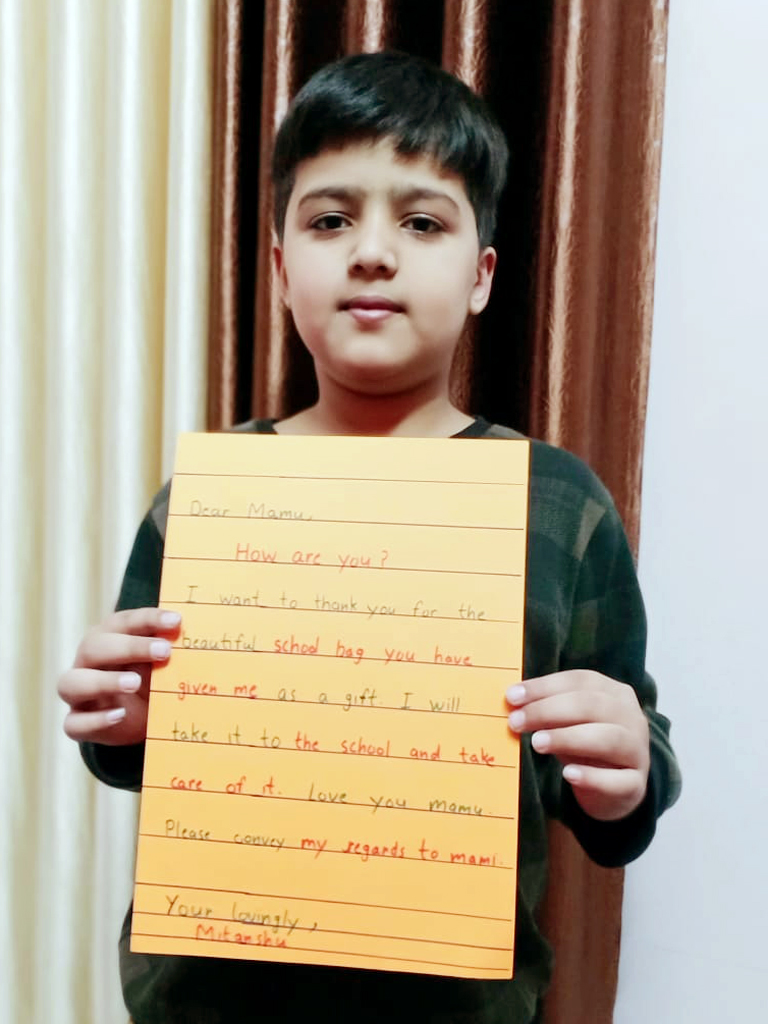 Dear Mamu,
How are you?
I want to thank you for the
beautiful school bag you have
given me as a gift. I will
take it to the school and take
care of it. Love you mamu.
Please convey my regards to mami.
Your lovingly,
Mitanshu